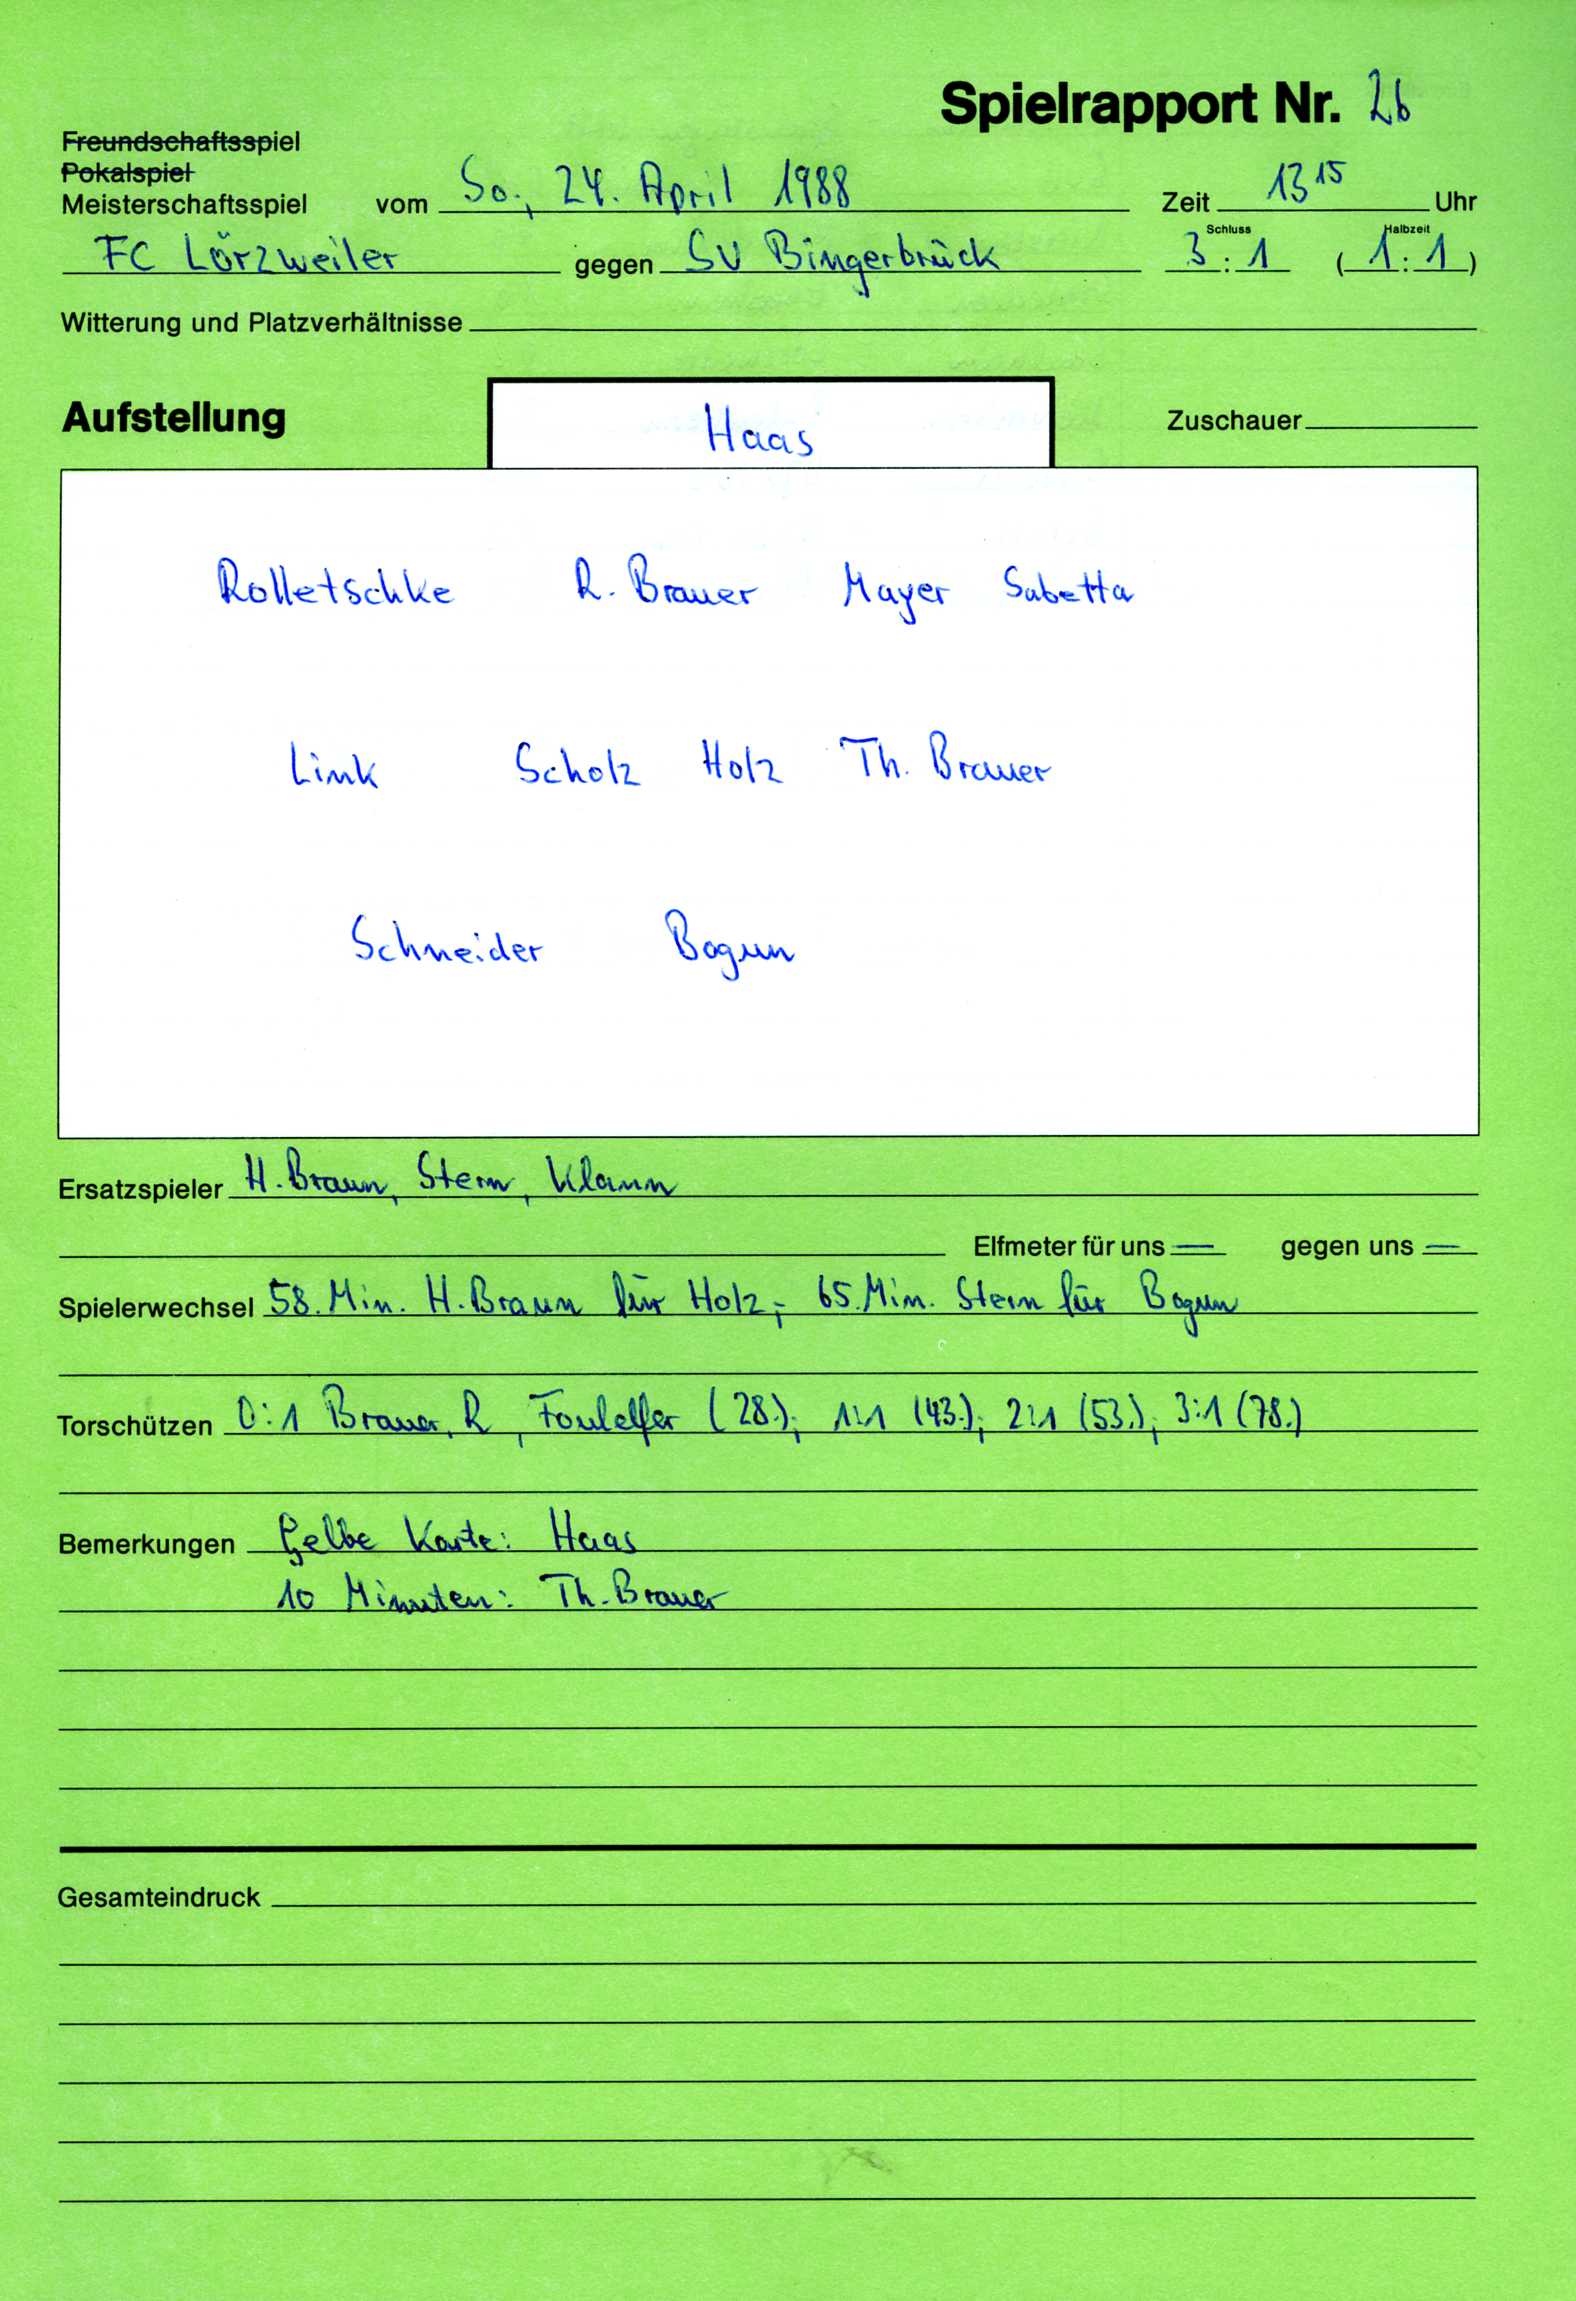 Spielrapport Nr. 26
Freundschaftsspiel
Pokalspiel
Meisterschaftsspiel vom So., 24. April 1988 Zeit 13 15 Uhr
FC Lörzweiler gegen SV Bingerbrück Schluss 3 : 1 Halbzeit ( 1 : 1 )
Witterung und Platzverhältnisse
Aufstellung Haas Zuschauer
Rolletschke R. Brauer Mayer Sabetta
Link Scholz Holz Th. Brauer
Schneider Bogun
Ersatzspieler H. Braun, Stern, Klamm
Elfmeter für uns — gegen uns —
Spielerwechsel 58. Min. H. Braun für Holz; 65. Min. Stern für Bogun
Torschützen 0:1 Brauer, R., Foulelfer (28.); 1:1 (43.); 2:1 (53.); 3:1 (78.)
Bemerkungen Gelbe Karte: Haas
10 Minuten: Th. Brauer
Gesamteindruck